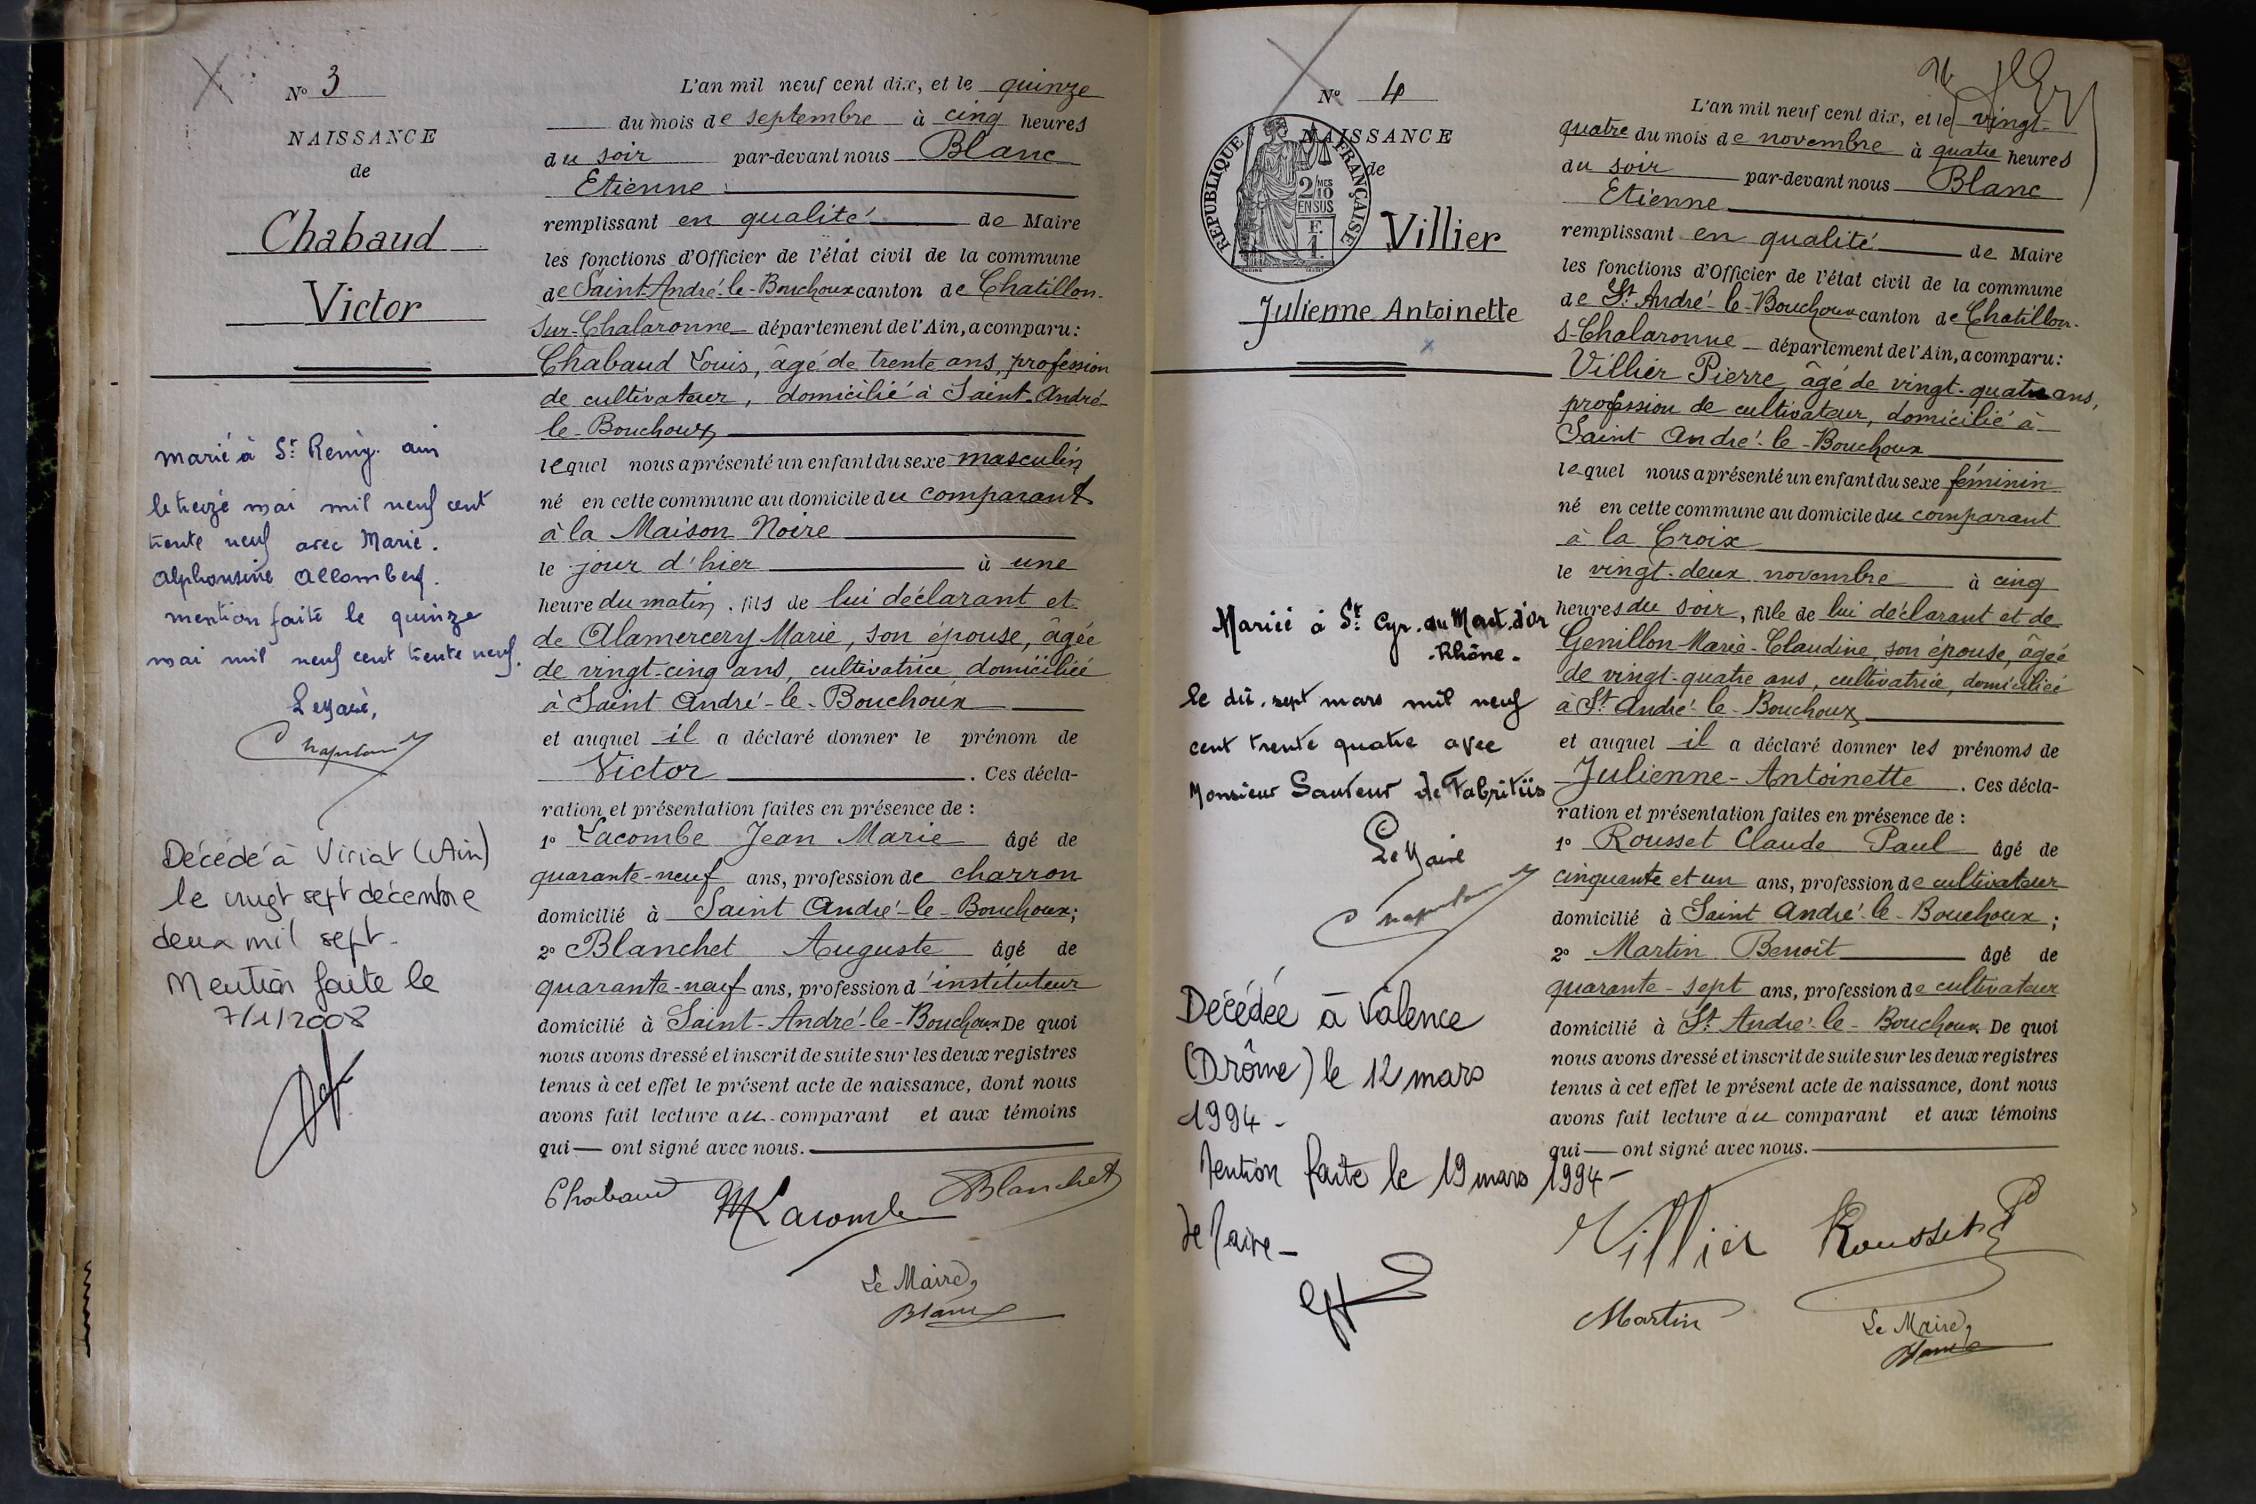 N° 3
NAISSANCE
de
Chabaud
Victor
marié à St Remy. ain
le treize mai mil neuf cent
trente neuf avec Marie.
Alphonsine Allombert.
mention faite le quinze
mai mil neuf cent trente neuf.
Le Maire,
Décédé à Viriat (Ain)
le vingt sept décembre
deux mil sept-
Mention faite le
7/1/2008
L'an mil neuf cent dix, et le quinze
du mois de septembre à cinq heures
du soir par-devant nous Blanc
Etienne
remplissant en qualité de Maire
les fonctions d'Officier de l'état civil de la commune
de Saint-André-le-Bouchoux canton de Chatillon-
sur-Chalaronne département de l'Ain, a comparu :
Chabaud Louis, âgé de trente ans, profession
de cultivateur, domicilié à Saint-André-
le-Bouchoux
lequel nous a présenté un enfant du sexe masculin
né en cette commune au domicile du comparant
à la Maison Noire
le jour d'hier à une
heure du matin, fils de lui déclarant et
de Alamercery Marie, son épouse, âgée
de vingt-cinq ans, cultivatrice domiciliée
à Saint André-le-Bouchoux
et auquel il a déclaré donner le prénom de
Victor . Ces décla-
ration et présentation faites en présence de :
1° Lacombe Jean Marie âgé de
quarante-neuf ans, profession de charron
domicilié à Saint André-le-Bouchoux;
2° Blanchet Auguste âgé de
quarante-neuf ans, profession d'instituteur
domicilié à Saint-André-le-Bouchoux De quoi
nous avons dressé et inscrit de suite sur les deux registres
tenus à cet effet le présent acte de naissance, dont nous
avons fait lecture au comparant et aux témoins
qui — ont signé avec nous.
Chabaud Lacombe Blanchet
Le Maire,
Blanc
N° 4
NAISSANCE
de
RÉPUBLIQUE FRANÇAISE
2/10 MES
EN SUS
F.
1.
Villier
Julienne Antoinette
Mariée à St Cyr. au Mont. d'or
-Rhône-
le dix. sept mars mil neuf
cent trente quatre avec
Monsieur Sauveur de Fabritiis
Le Maire
Décédée à Valence
(Drôme) le 12 mars
1994 -
Mention faite le 19 mars 1994 -
Le Maire -
L'an mil neuf cent dix, et le vingt-
quatre du mois de novembre à quatre heures
du soir par-devant nous Blanc
Etienne
remplissant en qualité de Maire
les fonctions d'Officier de l'état civil de la commune
de St André-le-Bouchoux canton de Chatillon-
s-Chalaronne département de l'Ain, a comparu :
Villier Pierre, âgé de vingt-quatre ans,
profession de cultivateur, domicilié à
Saint André-le-Bouchoux
lequel nous a présenté un enfant du sexe féminin
né en cette commune au domicile du comparant
à la Croix
le vingt-deux novembre à cinq
heures du soir, fille de lui déclarant et de
Genillon Marie-Claudine, son épouse, âgée
de vingt-quatre ans, cultivatrice, domiciliée
à St André-le-Bouchoux
et auquel il a déclaré donner les prénoms de
Julienne-Antoinette . Ces décla-
ration et présentation faites en présence de :
1° Rousset Claude Paul âgé de
cinquante et un ans, profession de cultivateur
domicilié à Saint André-le-Bouchoux ;
2° Martin Benoit âgé de
quarante-sept ans, profession de cultivateur
domicilié à St André-le-Bouchoux De quoi
nous avons dressé et inscrit de suite sur les deux registres
tenus à cet effet le présent acte de naissance, dont nous
avons fait lecture au comparant et aux témoins
qui — ont signé avec nous.
Villier Rousset
Martin Le Maire,
Blanc